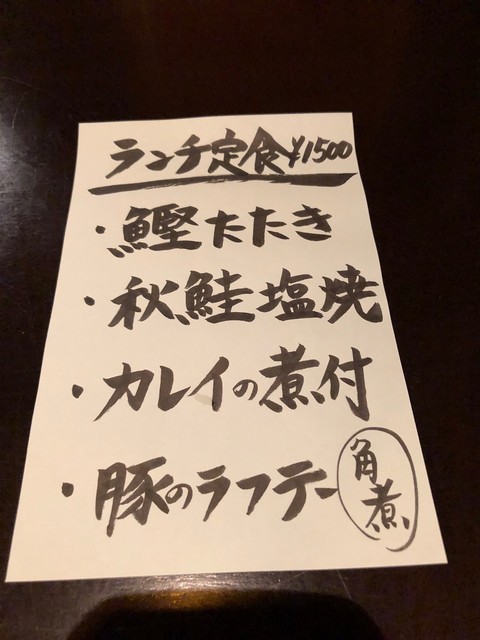 ランチ定食¥1500
・鰹たたき
・秋鮭塩焼
・カレイの煮付
・豚のラフテー 角煮